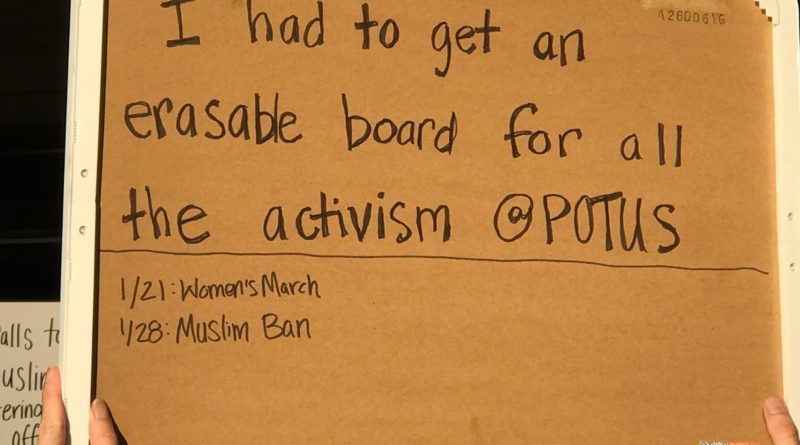 I had to get an
erasable board for all
the activism @POTUS
1/21: Women's March
1/28: Muslim Ban
A26096YG
alls to
uslim
ering
off